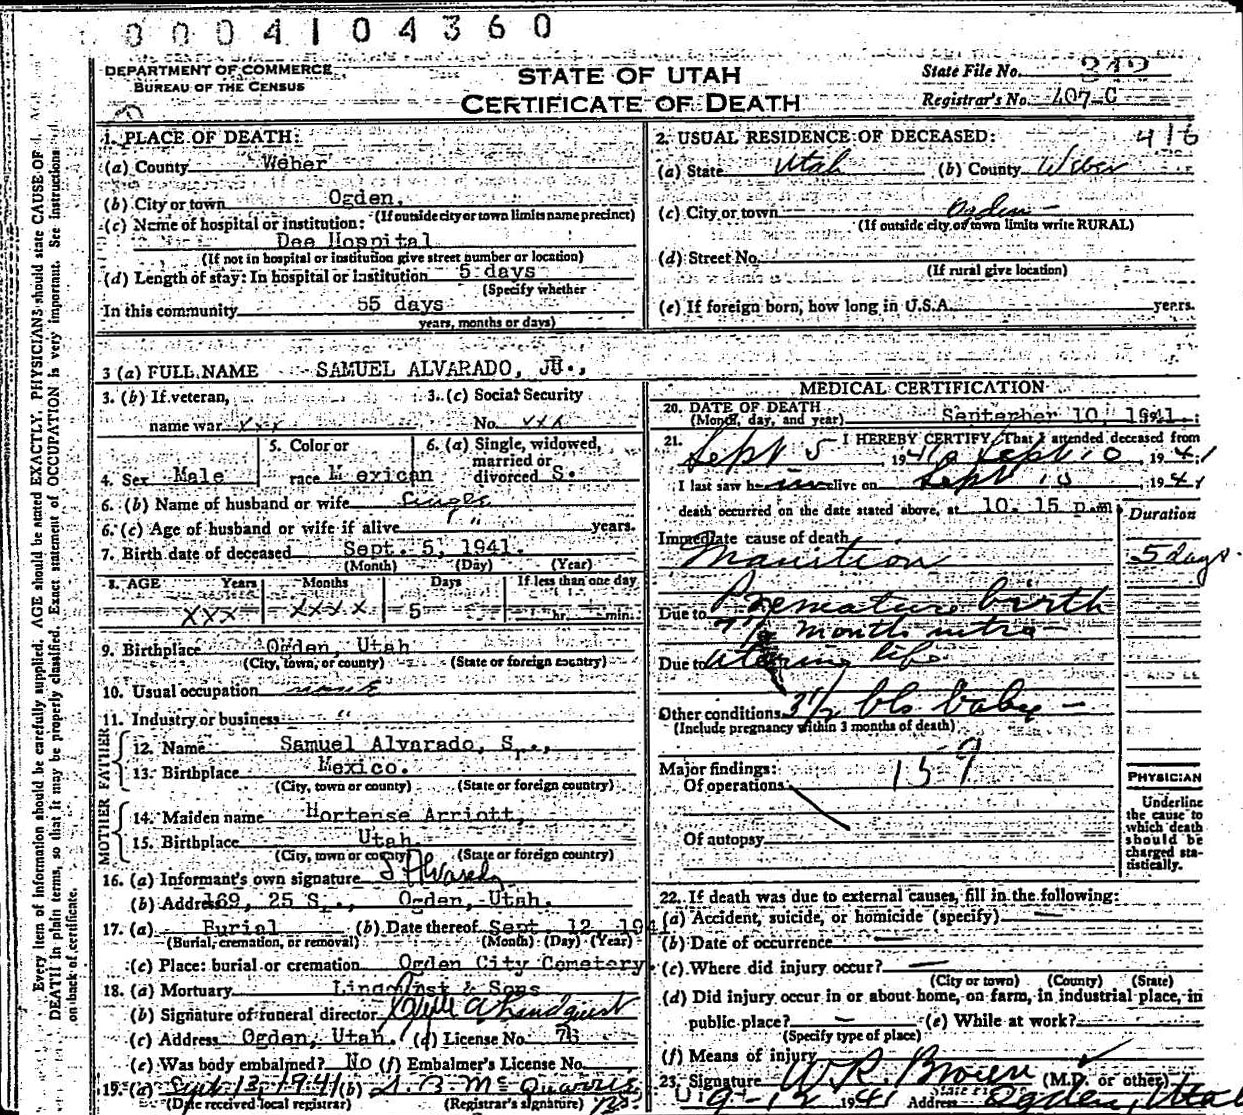 0004104360
DEPARTMENT OF COMMERCE
BUREAU OF THE CENSUS
STATE OF UTAH
CERTIFICATE OF DEATH
State File No. 342
Registrar's No. 407 C
1. PLACE OF DEATH:
(a) County Weber
(b) City or town Ogden.
(If outside city or town limits name precinct)
(c) Name of hospital or institution:
Dee Hospital
(If not in hospital or institution give street number or location)
(d) Length of stay: In hospital or institution 5 days
(Specify whether
In this community 55 days
years, months or days)
2. USUAL RESIDENCE OF DECEASED: 416
(a) State Utah (b) County Weber
(c) City or town Ogden
(If outside city or town limits write RURAL)
(d) Street No.
(If rural give location)
(e) If foreign born, how long in U.S.A. years.
3 (a) FULL NAME SAMUEL ALVARADO, JR.,
3. (b) If veteran,
name war xxx
3. (c) Social Security
No. xxx
4. Sex Male
5. Color or
race Mexican
6. (a) Single, widowed,
married or
divorced S.
6. (b) Name of husband or wife Single
6. (c) Age of husband or wife if alive " years.
7. Birth date of deceased Sept. 5, 1941.
(Month) (Day) (Year)
8. AGE Years Months Days If less than one day
xxx xxxx 5 hr. min.
9. Birthplace Ogden, Utah
(City, town, or county) (State or foreign country)
10. Usual occupation none
11. Industry or business "
FATHER
12. Name Samuel Alvarado, S.,
13. Birthplace Mexico.
(City, town or county) (State or foreign country)
MOTHER
14. Maiden name Hortense Arriott,
15. Birthplace Utah.
(City, town or county) (State or foreign country)
16. (a) Informant's own signature
(b) Address 169, 25 S., Ogden, Utah.
17. (a) Burial (b) Date thereof Sept. 12, 1941
(Burial, cremation, or removal) (Month) (Day) (Year)
(c) Place: burial or cremation Ogden City Cemetery
18. (a) Mortuary Lindquist & Sons
(b) Signature of funeral director Lindquist
(c) Address Ogden, Utah. (d) License No. 76
(e) Was body embalmed? No (f) Embalmer's License No.
19. (a) Sept 13, 1941 (b)
(Date received local registrar) (Registrar's signature)
MEDICAL CERTIFICATION
20. DATE OF DEATH
(Month, day, and year) September 10, 1941.
21. I HEREBY CERTIFY, That I attended deceased from
Sept 5, 1941 to Sept 10, 1941
I last saw him alive on Sept 10, 1941
death occurred on the date stated above, at 10.15 p.m.
Duration
Immediate cause of death
Inanition 5 days
Due to Premature birth
7 1/2 months intra
Due to uterine life
Other conditions 3 1/2 lbs baby
(Include pregnancy within 3 months of death)
Major findings: 159
Of operations
Of autopsy
PHYSICIAN
Underline
the cause to
which death
should be
charged sta-
tistically.
22. If death was due to external causes, fill in the following:
(a) Accident, suicide, or homicide (specify)
(b) Date of occurrence
(c) Where did injury occur?
(City or town) (County) (State)
(d) Did injury occur in or about home, on farm, in industrial place, in
public place? (e) While at work?
(Specify type of place)
(f) Means of injury
23. Signature W.R. Brown (M.D. or other)
9-12 1941 Address Ogden, Utah
Every item of information should be carefully supplied. AGE should be stated EXACTLY. PHYSICIANS should state CAUSE OF
DEATH in plain terms, so that it may be properly classified. Exact statement of OCCUPATION is very important. See instructions
on back of certificate.